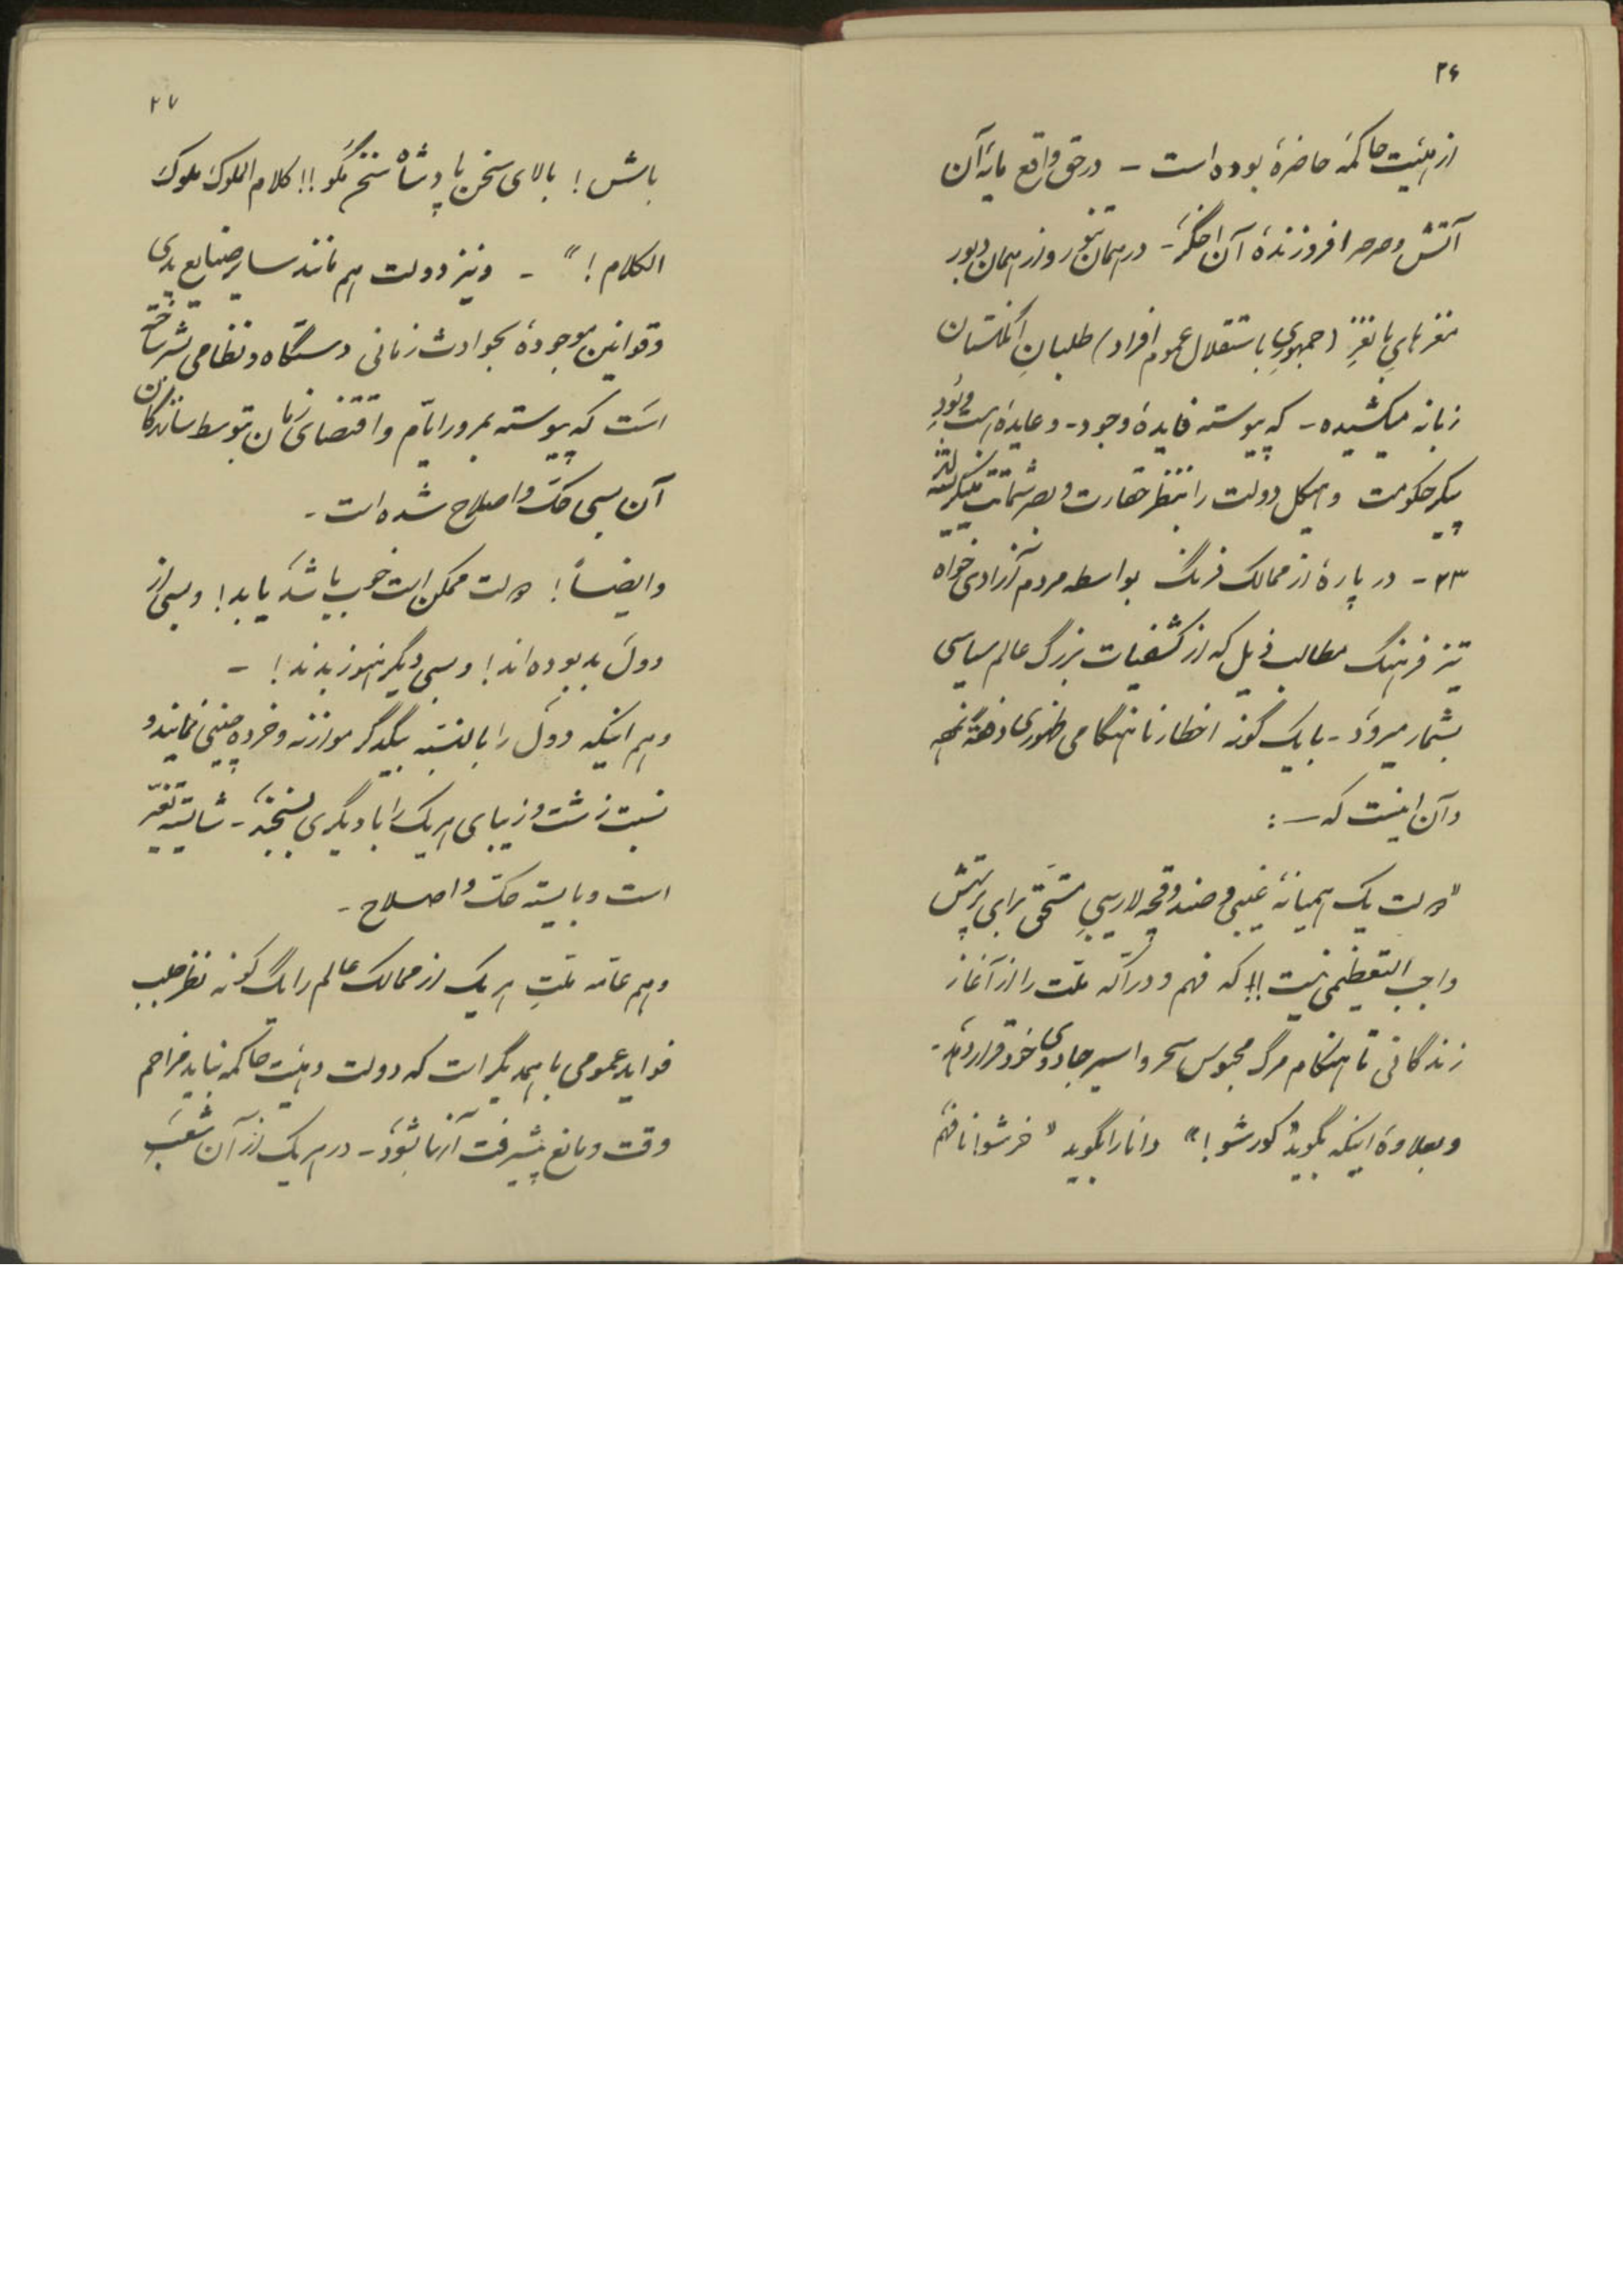 ۲۶
از هیئت حاکمهٔ حاضره بوده است – در حق واقع مایهٔ آن
آتش و صرصر افروزندهٔ آن اخگر – در همان تنور و از همان
مغزهای با نغزِ (جمهوریِ با ستقلال عموم افراد) طلبانِ انگلستان
زبانه میکشیده – که پیوسته فایدهٔ وجود – و عایدهٔ هست و بودِ
پیکر حکومت و هیکل دولت را بنظر حقارت و بصر شماتت مینگریسته‌اند
۲۳ – در پارهٔ از ممالک فرنگ بواسطه مردم آزادی خواه
تیز فرهنگ مطالب ذیل که از کشفیات بزرگ عالم سیاسی
بشمار میرود – با یک گونه اخطار نا بهنگامی ظهوری
و آن اینست که –:
"دولت یک همیانهٔ غیبی و صندوقچه لاریبیِ مستحق برای پرستش
واجب التعظیمی نیست!! که فهم و درّاکه ملت را از آغاز
زندگانی تا هنگام مرگ محبوس سحر و اسیر جادوی خود قرار دهد –
و بعلاوهٔ اینکه بگوید "کور شو!" دانا را بگوید "خر شو! نا فهم
۲۷
باش! بالای سخن پادشاه سخن مگو!! کلام الملوک ملوک
الکلام!" – و نیز دولت هم مانند سایر صنایع یدی
و قوانین موجودهٔ بحوادث زمانی دستگاه و نظامی بشر ساخته
است که پیوسته بمرور ایّام و اقتضای زمان بتوسط سازندگان
آن بسی حک و اصلاح شده است –
و ایضاً! دولت ممکن است خوب باشد یا بد! و بسی از
دول بد بوده‌اند! و بسی دیگر هنوز بدند! –
و هم اینکه دول را بالنسبه بیکدگر موازنه و خرده چینی نمایند و
نسبت زشت و زیبای هر یک را با دیگری بسنجند – شایسته تغیّر
است و بایسته حک و اصلاح –
و هم عامه ملّتِ هر یک از ممالک عالم را یک گونه نظر جلب
فواید عمومی با همدیگر است که دولت و هیئت حاکمه نباید مزاحم
وقت و مانع پیشرفت آنها بشود – در هر یک از آن شعب